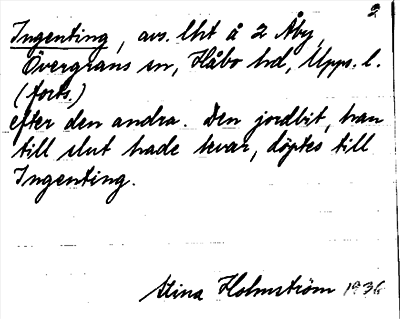 2
Ingenting, avs. lht å 2 Åby,
Övergrans sn, Håbo hd, Upps. l.
(forts.)
efter den andra. Den jordbit, han
till slut hade kvar, döptes till
Ingenting.
Stina Holmström 1936